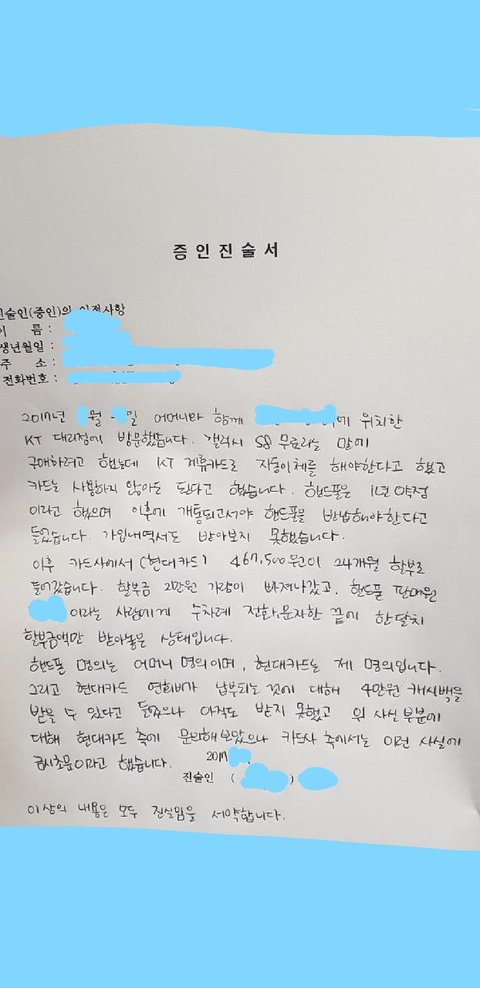 증인진술서
진술인(증인)의 인적사항
이 름 :
생년월일 :
주 소 :
전화번호 :
2017년 월 일 어머니와 함께 에 위치한
KT 대리점에 방문했습니다. 갤럭시 S8 무료라는 말에
구매하려고 했는데 KT 제휴카드로 자동이체를 해야한다고 했고
카드는 사용하지 않아도 된다고 했습니다. 핸드폰은 1년 약정
이라고 했으며 이후에 개통되고서야 핸드폰을 반납해야한다고
들었습니다. 가입내역서도 받아보지 못했습니다.
이후 카드사에서 (현대카드) 467,500원이 24개월 할부로
들어갔습니다. 할부금 2만원 가량이 빠져나갔고, 핸드폰 판매원
이라는 사람에게 수차례 전화,문자한 끝에 한달치
할부금액만 받아놓은 상태입니다.
핸드폰 명의는 어머니 명의이며, 현대카드는 제 명의입니다.
그리고 현대카드 연회비가 납부되는 것에 대해 4만원 캐시백을
받을 수 있다고 들었으나 아직도 받지 못했고 위 사실 부분에
대해 현대카드 측에 문의해보았으나 카드사 측에서는 이런 사실에
금시초문이라고 했습니다. 2017
진술인 ( )
이상의 내용은 모두 진실임을 서약합니다.